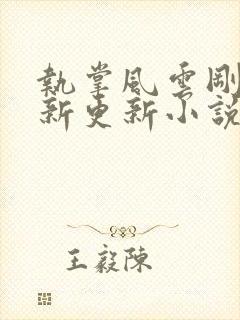 執掌風雲剛
新更新小說
王毅陳